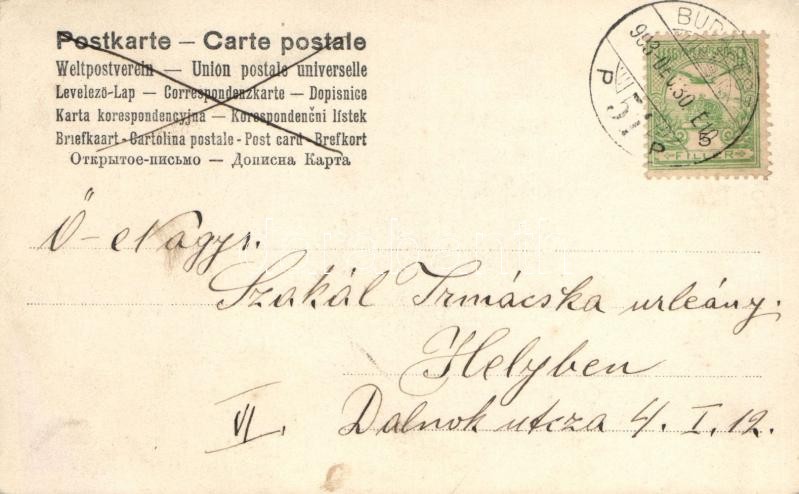 Postkarte — Carte postale
Weltpostverein — Union postale universelle
Levelező-Lap — Correspondenzkarte — Dopisnice
Karta korespondencyjna — Korespondenční lístek
Briefkaart - Cartolina postale - Post card - Brefkort
Открытое-письмо — Дописна Карта
BUD
903 DEC. 30
P 57 P
5
FILLÉR
Ő Nagys.
Szakál Irmácska urleány.
Helyben
VI. Dalnok utcza 4. I. 12.